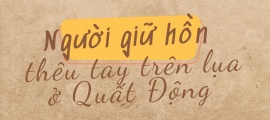 Người giữ hồn
thêu tay trên lụa
ở Quất Động